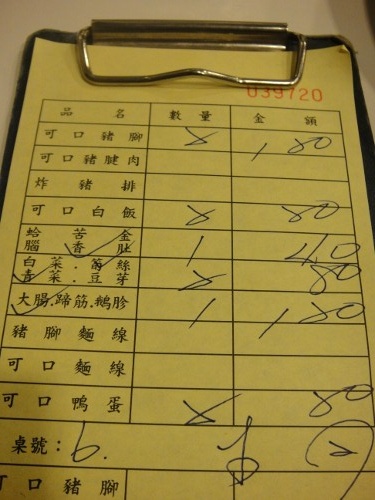 039720
品 名 數量 金 額
可口豬腳
可口豬腱肉
炸豬排
可口白飯
蛤 苦 金
腦 香 肚 1 40
白菜.萵絲
青菜.豆芽 80
大腸.蹄筋.鵝胗 1
豬腳麵線
可口麵線
可口鴨蛋
桌號: 6.
可口豬腳